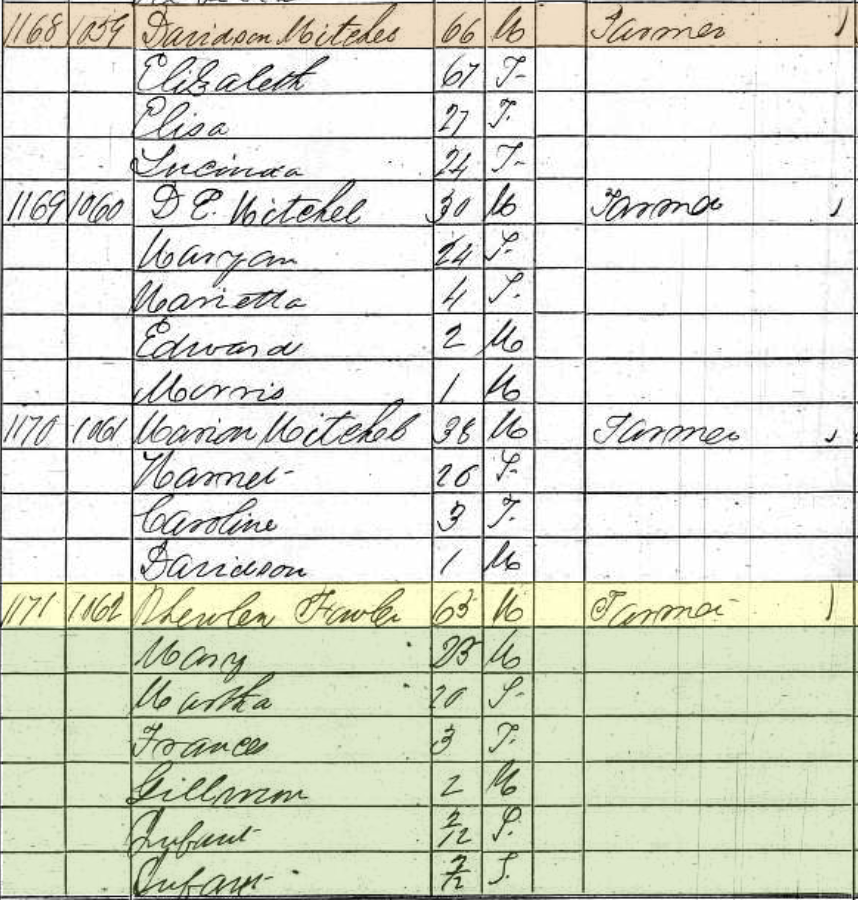 1168 1059 Davidson Mitchel 66 M Farmer 1
Elizabeth 67 F
Elisa 27 F
Lucinda 24 F
1169 1060 D P. Mitchel 30 M Farmer 1
Maryan 24 F
Marietta 4 F
Edward 2 M
Morris 1 M
1170 1061 Marion Mitchel 38 M Farmer 1
Harriet 26 F
Caroline 3 F
Davidson 1 M
1171 1062 Fowler 63 M Farmer 1
Mary 23 M
Martha 20 F
Frances 3 F
Gillmon 2 M
Infant 2/12 F
Infant 2/12 F